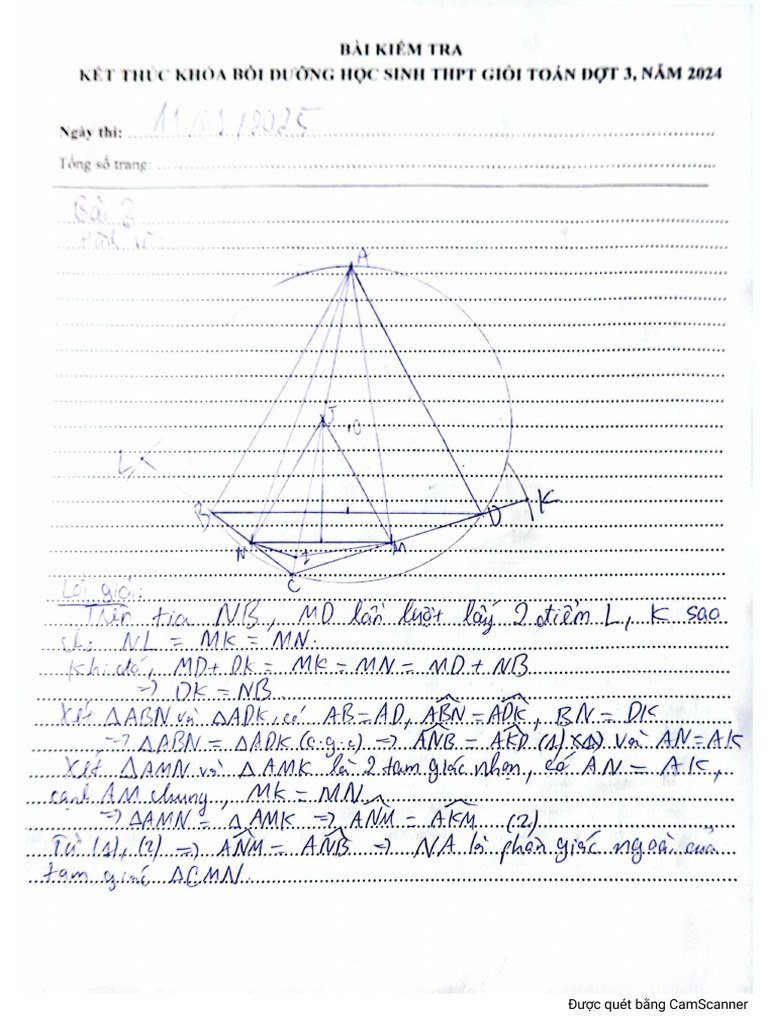 BÀI KIỂM TRA
KẾT THÚC KHÓA BỒI DƯỠNG HỌC SINH THPT GIỎI TOÁN ĐỢT 3, NĂM 2024
Ngày thi: 11/01/2025
Tổng số trang:
Bài 3:
Hình vẽ:
A
J
O
L
B
D
K
N
I
M
C
Lời giải:
Trên tia NB, MD lần lượt lấy 2 điểm L, K sao
cho NL = MK = MN.
Khi đó, MD + DK = MK = MN = MD + NB
=> DK = NB
Xét ΔABN và ΔADK, có AB = AD, \widehat{ABN} = \widehat{ADK}, BN = DK
=> ΔABN = ΔADK (c.g.c) => \widehat{ANB} = \widehat{AKD} (1) và AN = AK
Xét ΔAMN và ΔAMK là 2 tam giác nhọn, có AN = AK,
cạnh AM chung, MK = MN
=> ΔAMN = ΔAMK => \widehat{ANM} = \widehat{AKM} (2)
Từ (1), (2) => \widehat{ANM} = \widehat{ANB} => NA là phân giác ngoài của
tam giác ΔCMN.
Được quét bằng CamScanner